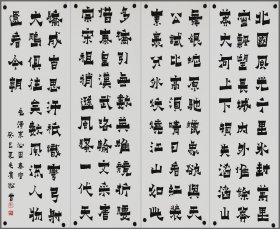 北國風光千里冰封萬里
雪飄望長城內外惟餘莽
莽大河上下頓失滔滔山
舞銀蛇原馳蠟象欲與天
公試比高須晴日看紅裝
素裹分外妖嬈江山如此
多嬌引無數英雄競折腰
惜秦皇漢武略輸文采唐
宗宋祖稍遜風騷一代天
驕成吉思汗只識彎弓射
大雕俱往矣數風流人物
還看今朝
毛澤東沁園春雪
癸巳夏